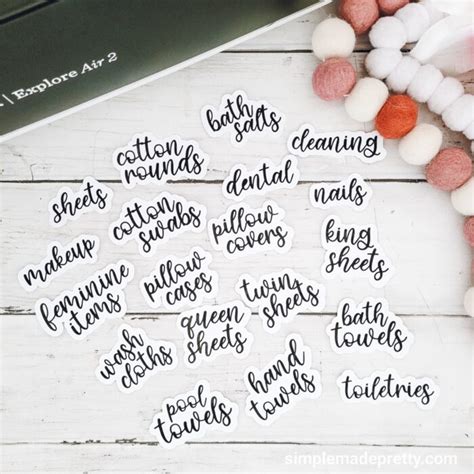 Explore Air 2
bath
salts
cleaning
cotton
rounds
dental
nails
sheets
cotton
swabs
pillow
covers
king
sheets
makeup
pillow
cases
feminine
items
twin
sheets
queen
sheets
bath
towels
wash
cloths
hand
towels
toiletries
pool
towels
simplemadepretty.com
simplemadepretty.com